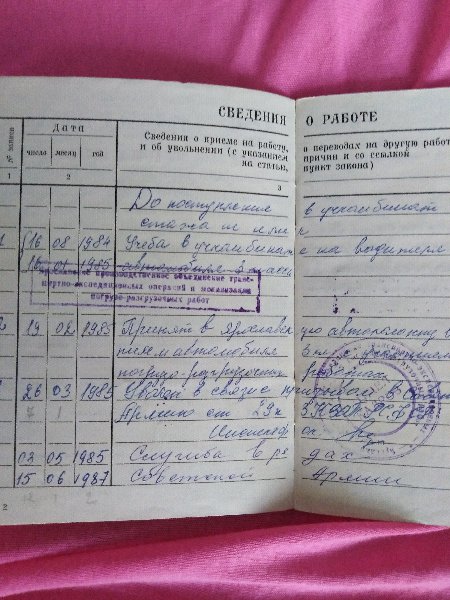 СВЕДЕНИЯ О РАБОТЕ
№ записи
Дата
число месяц год
Сведения о приеме на работу, о переводах на другую работ
и об увольнении (с указанием причин и со ссылкой
на статью, пункт закона)
1 2 3
До поступления в учкомбинат
стажа не имеет
1 16 08 1984 Учеба в учкомбинате на водителя
16 01 1985 автомобиля 3 класса
производственное объединение транс-
портно-экспедиционных операций и механизации
погрузо-разгрузочных работ
2 19 02 1985 Принят в Ярославскую автоколонну
автомобиля 3 кл.
погрузо-разгрузочных работах
26 03 1985 Уволен в связи с призывом в Сов
Армию ст 29 п 3 КЗОТ РСФ
Инспектор
02 05 1985 Служба в рядах
15 06 1987 Советской Армии
2